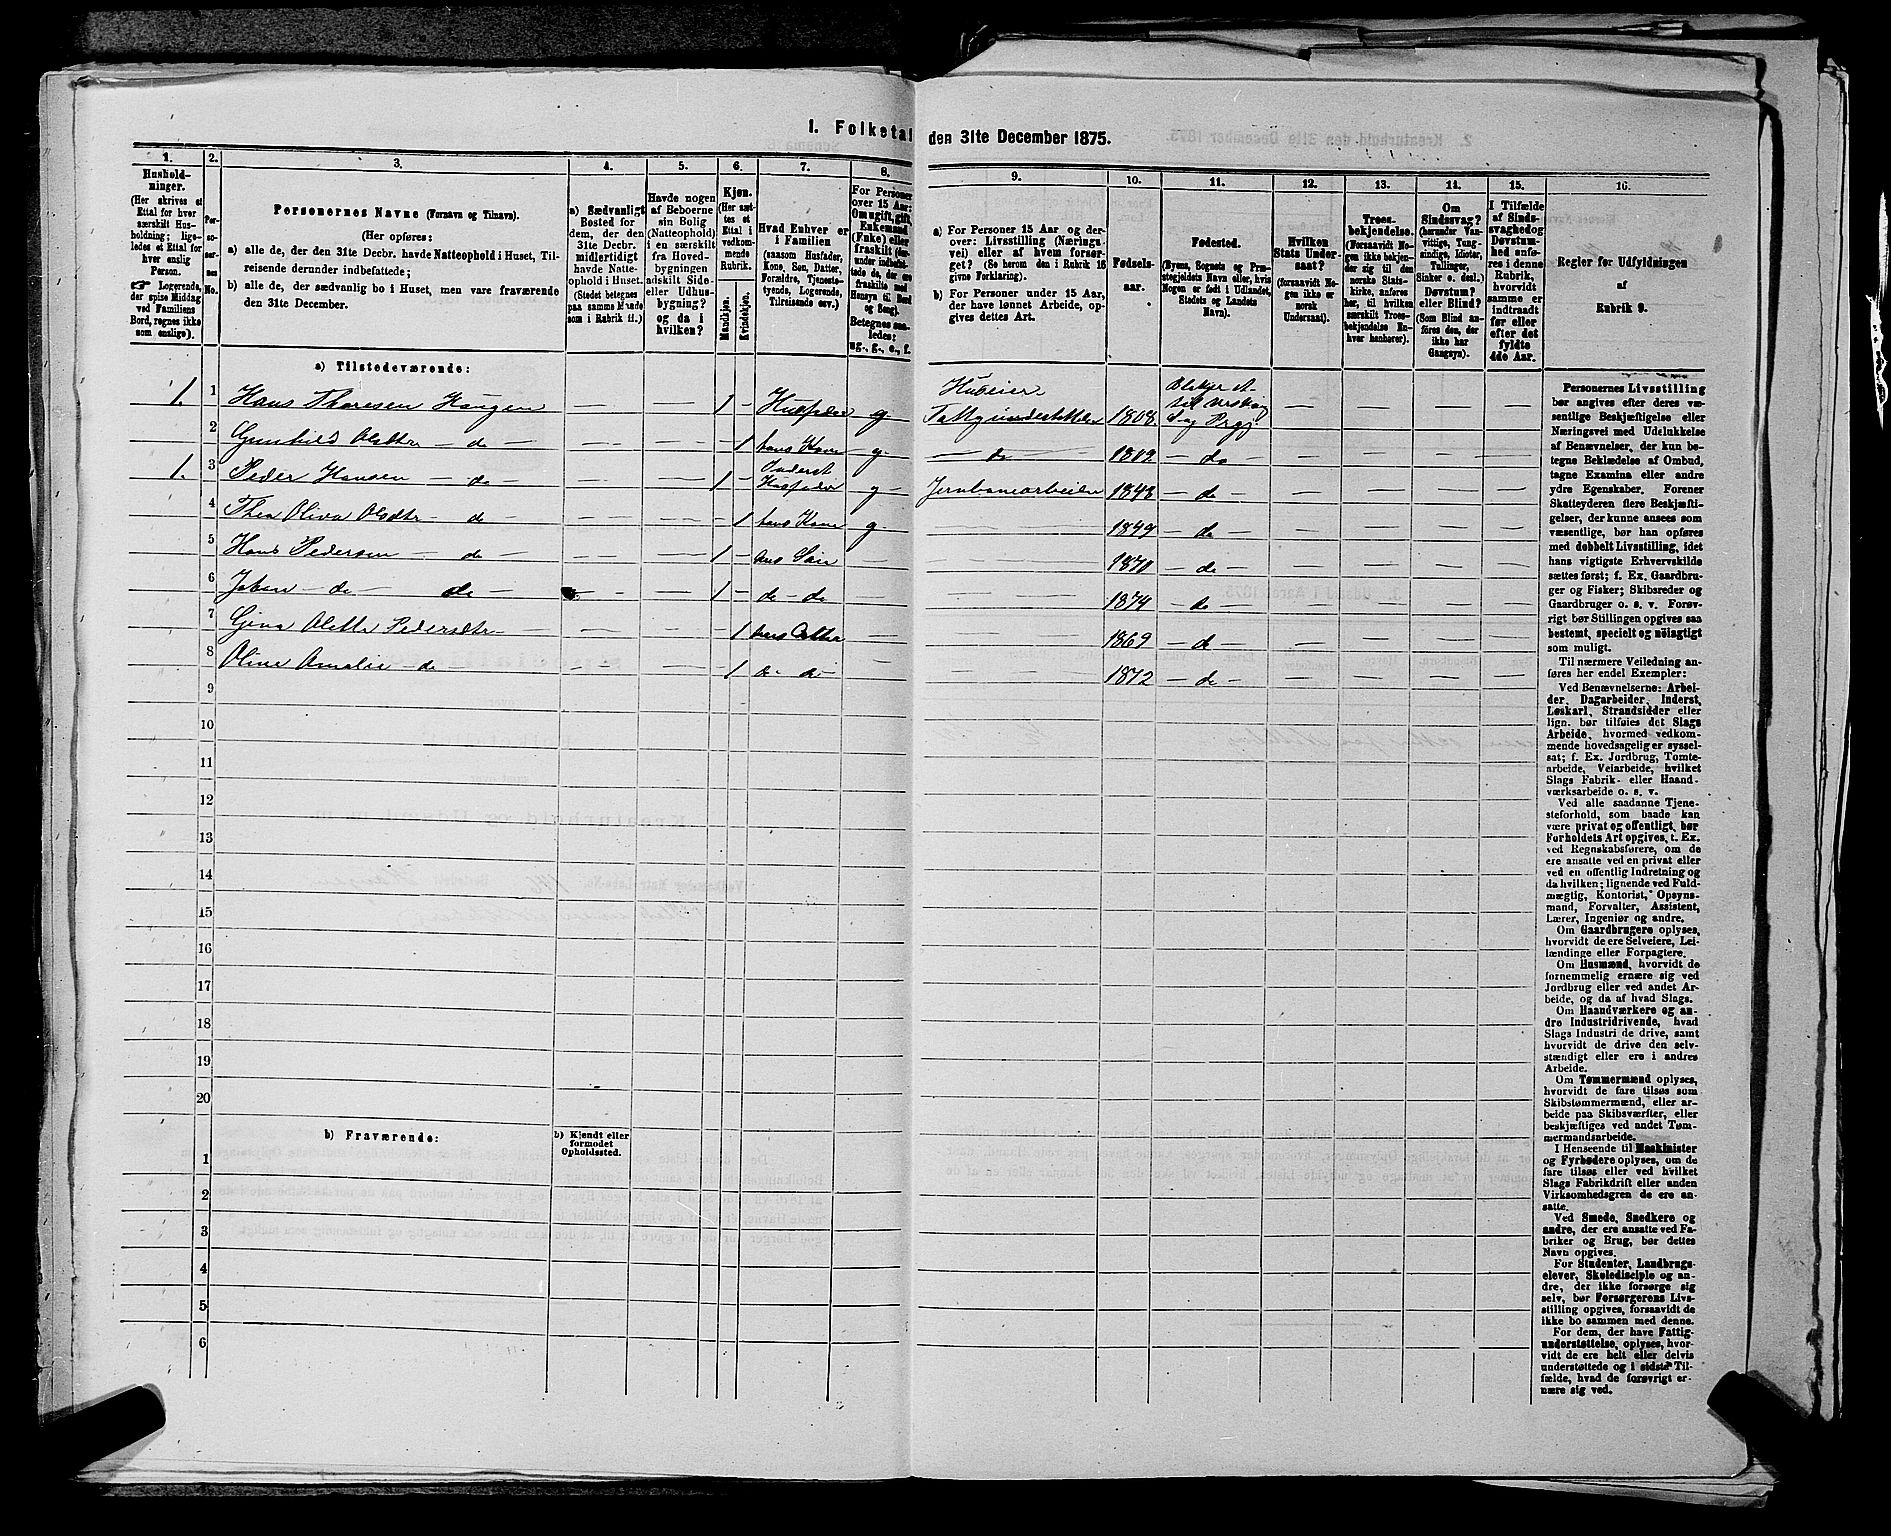 I. Folketal den 31te December 1875.
1. 2. 3. 4. 5. 6. 7. 8. 9. 10. 11. 12. 13. 14. 15. 16.
Hushold-
ninger.
(Her skrives et
Ettal for hver
særskilt Hus-
holdning; lige-
ledes et Ettal for
hver enslig
Person.
☞ Logerende,
der spise Middag
ved Familiens
Bord, regnes ikke
som enslige).
Per-
so-
ner-
nes
No.
Personernes Navne (Fornavn og Tilnavn).
(Her opføres:
a) alle de, der den 31te Decbr. havde Natteophold i Huset, Til-
reisende derunder indbefattede;
b) alle de, der sædvanlig bo i Huset, men vare fraværende
den 31te December.
a) Sædvanligt
Bosted for
dem, der den
31te Decbr.
midlertidigt
havde Natte-
ophold i Huset.
(Stedet betegnes
paa samme Maade
som i Rubrik 11.)
Havde nogen
af Beboerne
sin Bolig
(Natteophold)
i en særskilt
fra Hoved-
bygningen
adskilt Side-
eller Udhus-
bygning?
og da i
hvilken?
Kjøn.
(Her sæt-
tes et
Ettal i
vedkom-
mende
Rubrik.
Mandkjøn.
Kvindekjøn.
Hvad Enhver er
i Familien
(saasom Husfader,
Kone, Søn, Datter,
Forældre, Tjeneste-
tyende, Logerende
Tilreisende osv.)
For Personer
over 15 Aar:
Om ugift, gift,
Enkemand
(Enke) eller
fraskilt
Betegnes saa-
ledes:
ug., g., e., f.
a) For Personer 15 Aar og der-
over: Livsstilling (Nærings-
vei) eller af hvem forsør-
get? (Se herom den i Rubrik 16
givne Forklaring).
b) For Personer under 15 Aar,
der have lønnet Arbeide, op-
gives dettes Art.
Fødsels-
aar.
Fødested.
(Byens, Sognets og Præ-
stegjeldets Navn eller, hvis
Nogen er født i Udlandet,
Stedets og Landets
Navn).
Hvilken
Stats Under-
saat?
(forsaavidt No-
gen ikke er
norsk
Undersaat).
Troes-
bekjendelse.
(Forsaavidt No-
gen ikke bekjen-
der sig til den
norske Stats-
kirke, anføres
her, til hvilken
særskilt Troes-
bekjendelse En-
hver henhører).
Om
Sindssvag?
(herunder Van-
vittige, Tung-
sindige, Idioter,
Tullinger,
Sinker o. desl.).
Døvstum?
eller Blind?
(Som Blind an-
føres den, der
ikke har
Gangsyn).
I Tilfælde
af Sinds-
svaghed og
Døvstum-
hed anfø-
res i denne
Rubrik,
hvorvidt
samme er
indtraadt
før eller
efter det
fyldte
4de Aar.
Regler for Udfyldningen
af
Rubrik 9.
a) Tilstedeværende:
1. 1 Hans Thoresen Haugen — — 1 - Husfader g Huseier Fattigunderstøttelse 1808. — — — —
2 Gunhild Olsdtr — do — — — - 1 hans Kone g — do — 1812 — do — — — —
1. 3 Peder Hansen — do — — — 1 - Inderst Husfader g Jernbanearbeider 1843 — do — — — — —
4 Thea Oliva Olsdtr — do — — 1 hans Kone g — 1849 — do — — — — —
5 Hans Pedersen — do — — — 1 - hans Søn — — 1870 — do — — — — —
6 Johan — do — do — — — 1 - do — do — — 1874 — do — — — — —
7 Gina Olette Pedersdtr — — — 1 hans Datter — — 1869 — do — — — — —
8 Oline Amalie do — — — 1 do - do - — 1872 — do — — — — —
9
10
11
12
13
14
15
16
17
18
19
20
b) Fraværende:
b) Kjendt eller
formodet
Opholdssted.
1
2
3
4
5
6
Personernes Livsstilling
bør angives efter deres væ-
sentlige Beskjæftigelse eller
Næringsvei med Udelukkelse
af Benævnelser, der kun be-
tegne Beklædelse af Ombud,
tagne Examina eller andre
ydre Egenskaber. Forener
Skatteyderen flere Beskjæfti-
gelser, der kunne ansees som
væsentlige, bør han opføres
med dobbelt Livsstilling, idet
hans vigtigste Erhvervskilde
sættes først; f. Ex. Gaardbru-
ger og Fisker; Skibsreder og
Gaardbruger o. s. v. Forøv-
rigt bør Stillingen opgives saa
bestemt, specielt og nöiagtigt
som muligt.
Til nærmere Veiledning an-
føres her endel Exempler:
Ved Benævnelserne: Arbei-
der, Dagarbeider, Inderst,
Løskarl, Strandsidder eller
lign. bør tilføies det Slags
Arbeide, hvormed vedkom-
mende hovedsagelig er syssel-
sat; f. Ex. Jordbrug, Tomte-
arbeide, Veiarbeide, hvilket
Slags Fabrik- eller Haand-
værksarbeide o. s. v.
Ved alle saadanne Tjene-
steforhold, som baade kan
være privat og offentligt, bør
Forholdets Art opgives, t. Ex.
ved Regnskabsførere, om de
ere ansatte ved en privat eller
ved en offentlig Indretning og
da hvilken; lignende ved Fuld-
mægtig, Kontorist, Opsyns-
mand, Forvalter, Assistent,
Lærer, Ingeniør og andre.
Om Gaardbrugere oplyses,
hvorvidt de ere Selveiere, Lei-
lændinge eller Forpagtere.
Om Husmænd, hvorvidt de
fornemmelig ernære sig ved
Jordbrug eller ved andet Ar-
beide, og da af hvad Slags.
Om Haandværkere og an-
dre Industridrivende, hvad
Slags Industri de drive, samt
hvorvidt de drive den selv-
stændigt eller ere i andres
Arbeide.
Om Tømmermænd oplyses,
hvorvidt de fare tilsøs som
Skibstømmermænd, eller ar-
beide paa Skibsværfter, eller
beskjæftiges ved andet Tøm-
mermandsarbeide.
I Henseende til Maskinister
og Fyrbødere oplyses, om de
fare tilsøs eller ved hvilket
Slags Fabrikdrift eller anden
Virksomhedsgren de ere an-
satte.
Ved Smede, Snedkere og
andre, der ere ansatte ved Fa-
briker og Brug, bør dettes
Navn opgives.
For Studenter, Landbrugs-
elever, Skoledisciple og an-
dre, der ikke forsørge sig
selv, bør Forsørgerens Livs-
stilling opgives, forsaavidt de
ikke bo sammen med denne.
For dem, der have Fattig-
understøttelse, oplyses, hvor-
vidt de ere helt eller delvis
understøttede og i sidste Til-
fælde, hvad de forøvrigt er-
nære sig ved.